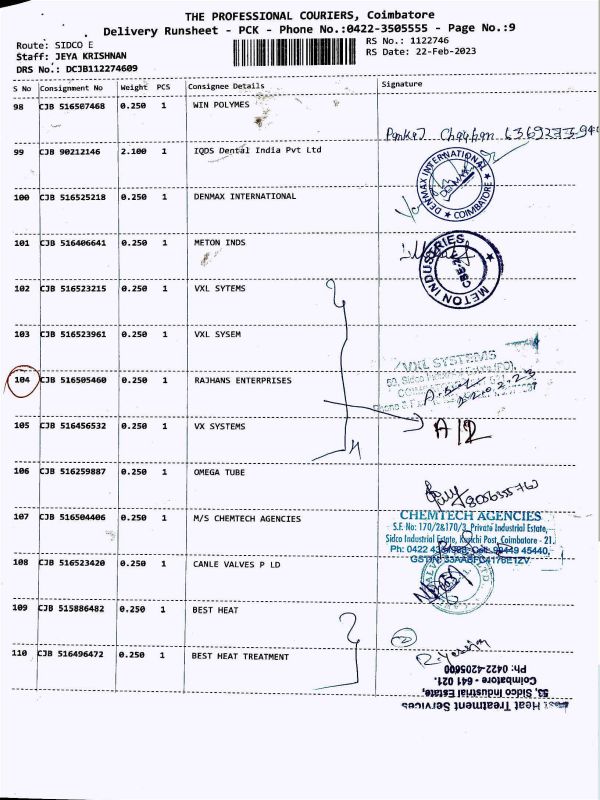 THE PROFESSIONAL COURIERS, Coimbatore
Delivery Runsheet - PCK - Phone No.:0422-3505555 - Page No.:9
Route: SIDCO E
RS No.: 1122746
Staff: JEYA KRISHNAN
RS Date: 22-Feb-2023
DRS No.: DCJB112274609
S No Consignment No Weight PCS Consignee Details Signature
98 CJB 516507468 0.250 1 WIN POLYMES
99 CJB 90212146 2.100 1 IQDS Dental India Pvt Ltd
DENMAX INTERNATIONAL
DENMAX
COIMBATORE
100 CJB 516525218 0.250 1 DENMAX INTERNATIONAL
101 CJB 516406641 0.250 1 METON INDS
METON INDUSTRIES
CBE
102 CJB 516523215 0.250 1 VXL SYTEMS
103 CJB 516523961 0.250 1 VXL SYSEM
VXL SYSTEMS
104 CJB 516505460 0.250 1 RAJHANS ENTERPRISES
105 CJB 516456532 0.250 1 VX SYSTEMS
106 CJB 516259887 0.250 1 OMEGA TUBE
107 CJB 516504406 0.250 1 M/S CHEMTECH AGENCIES
CHEMTECH AGENCIES
S.F. No: 170/2&170/3, Private Industrial Estate,
Sidco Industrial Estate, Kurichi Post, Coimbatore - 21.
Ph: 0422 45440,
108 CJB 516523420 0.250 1 CANLE VALVES P LD
109 CJB 515886482 0.250 1 BEST HEAT
110 CJB 516496472 0.250 1 BEST HEAT TREATMENT
Heat Treatment Services
53, Sidco Industrial Estate,
Coimbatore - 641 021.
Ph: 0422-4205600